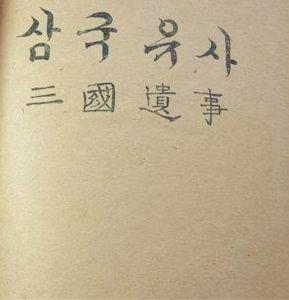 삼국유사
三國遺事